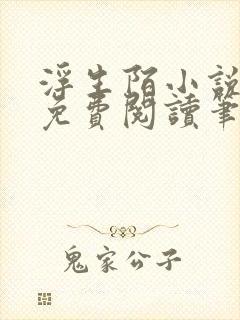 浮生陌小說
免費閱讀筆
鬼家公子